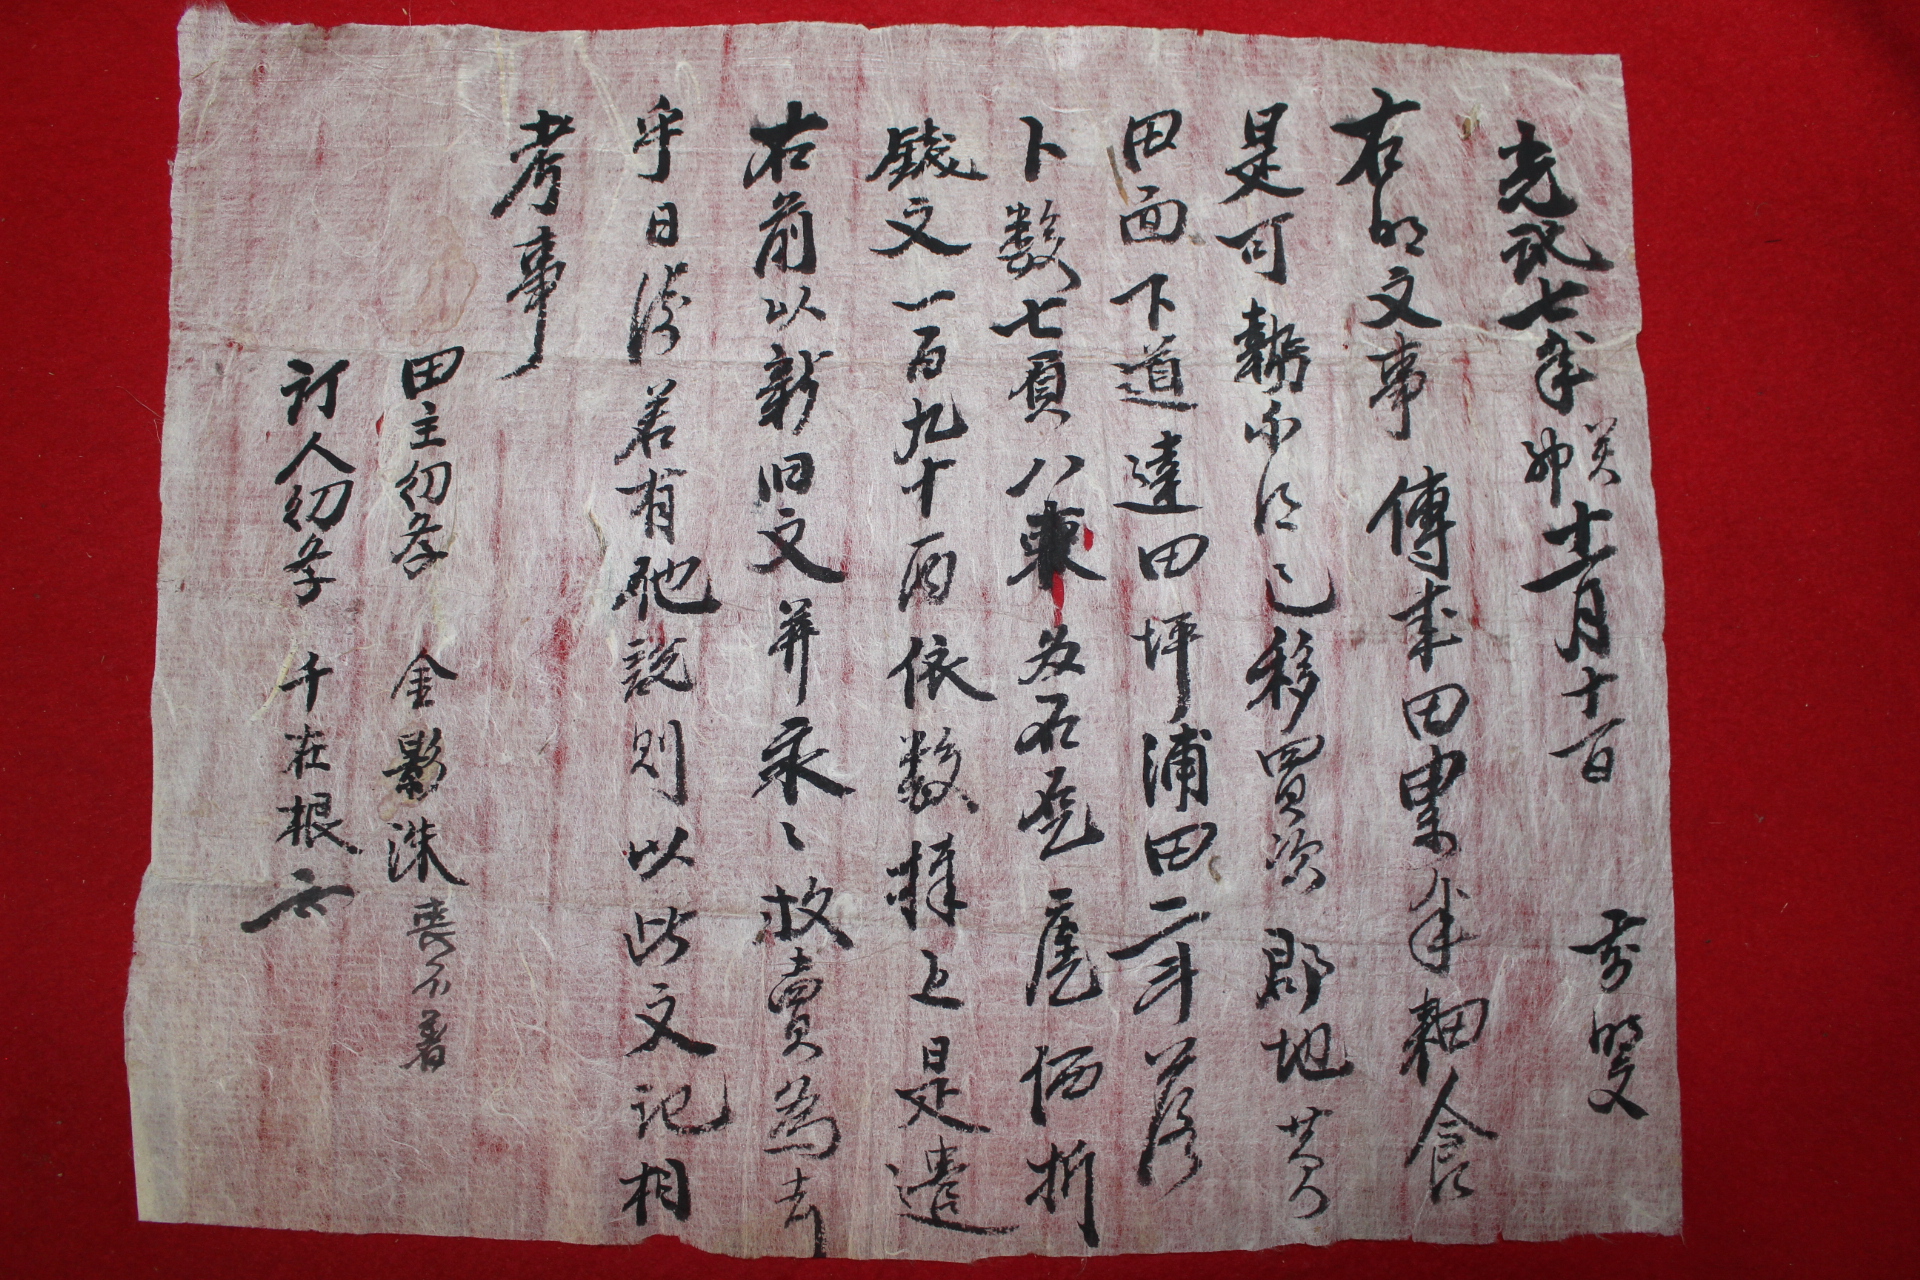 光武七年癸卯十一月十一日 前明文
右明文事傳來田畓累年耕食
是可 移買次郡地黃
田面下道達田坪浦田二斗落
卜數七負八束 廤價折
錢文一百九十両依數捧上是遣
右前以新旧文并永々放賣為去
乎日後若有他說則以此文記相
考事
田主幼學 金影洙 喪不着
訂人幼學 千在根